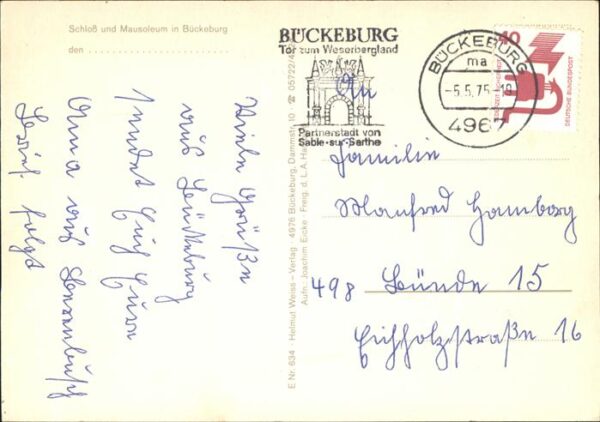 Schloß und Mausoleum in Bückeburg
den
Viele Grüße
aus Bückeburg
sendet Euch Eure
Oma aus
folgt
E Nr. 634 · Helmut Weiss-Verlag 4976 Bückeburg, Dammstr. 10 ☎ 05722/4
Aufn. Joachim Eicke Freig. d. L.A. Ha
BÜCKEBURG
Tor zum Weserbergland
Partnerstadt von
Sable-sur-Sarthe
BÜCKEBURG
ma
-5.5.75-18
4967
10
DEUTSCHE BUNDESPOST
An
Familie
Manfred Hamborg
498 Bünde 15
Eichholzstraße 16